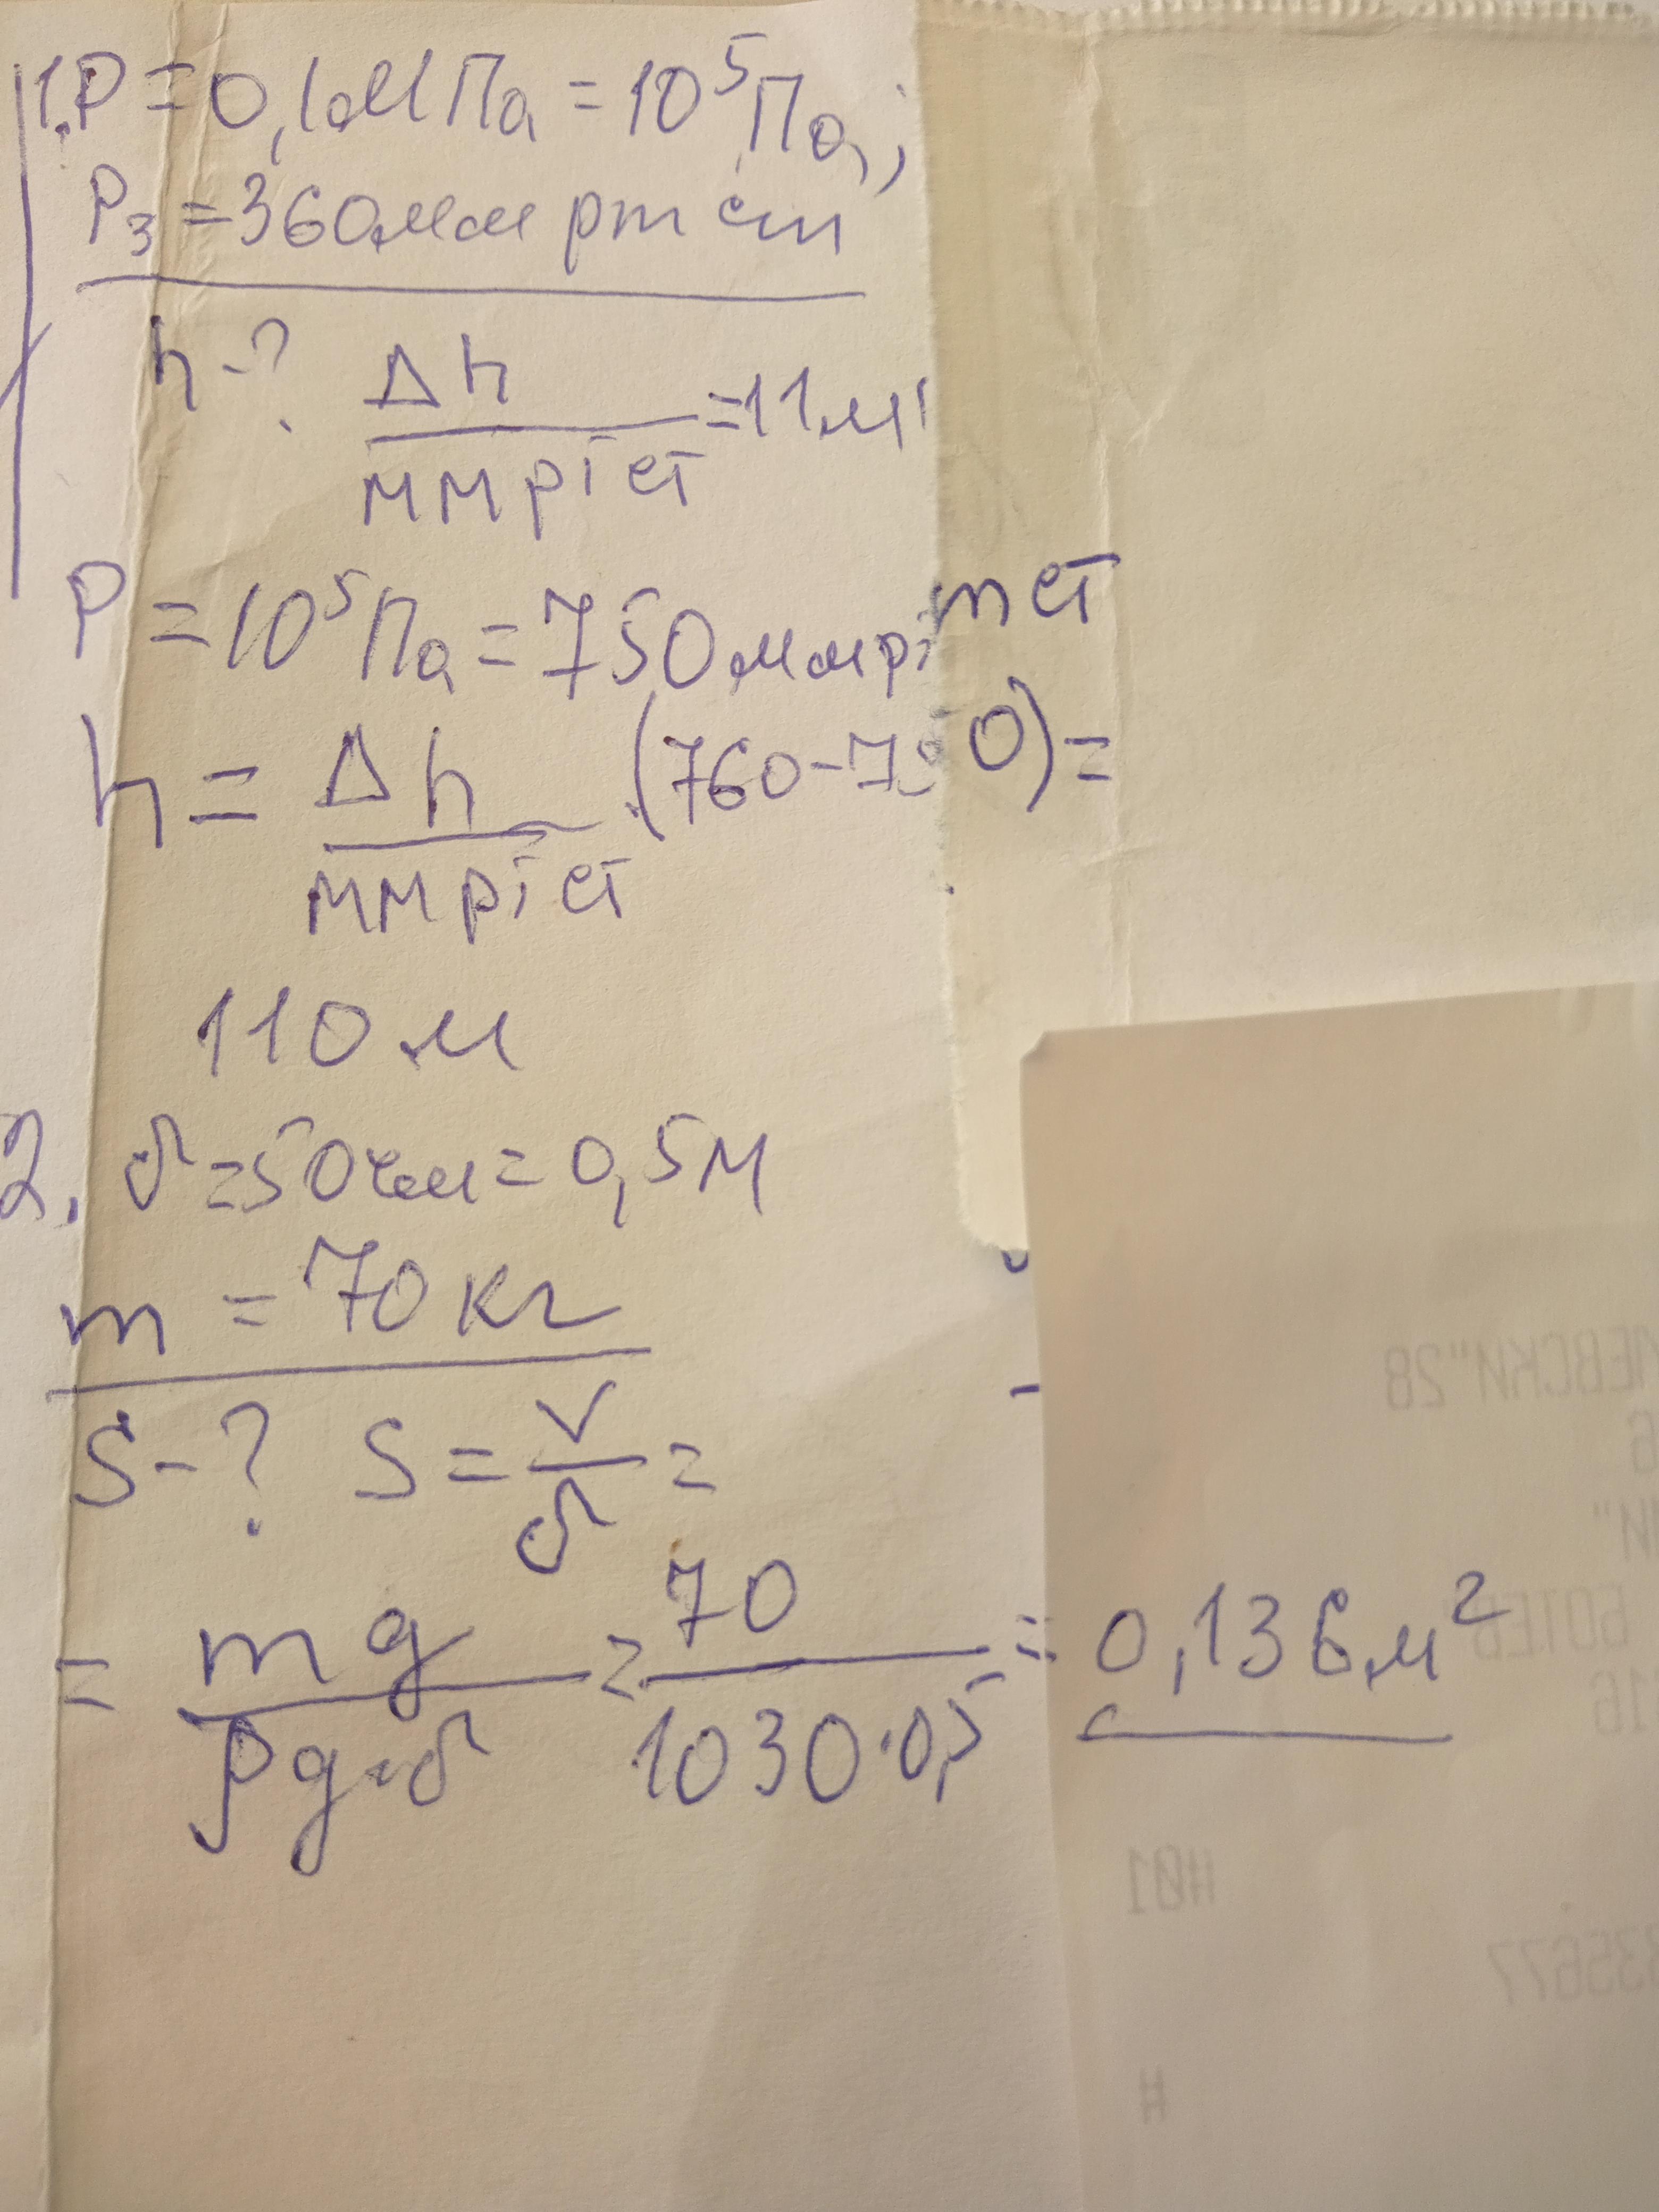 1. P = 0,1 МПа = 10⁵ Па;
P₃ = 360 мм рт ст
h - ? Δh / мм рт ст = 11 м
P = 10⁵ Па = 750 мм рт ст
h = Δh / мм рт ст (760-750) =
110 м
2. δ = 50 см = 0,5 м
m = 70 кг
S - ? S = V / δ =
= mg / ρg·δ = 70 / 1030·0,5 = 0,136 м²
ЛЕВСКИ"28
БОТЕВ
#01
35677
#